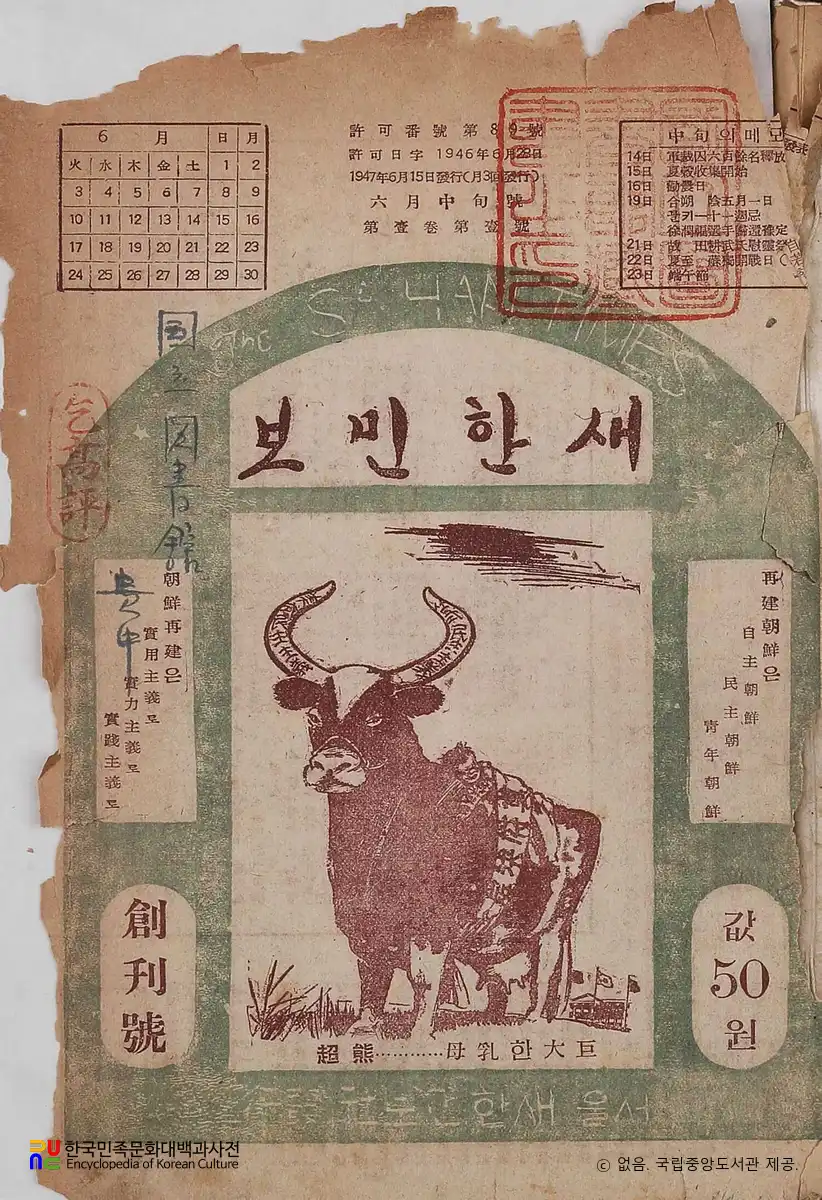 6 月 日 月
火 水 木 金 土 1 2
3 4 5 6 7 8 9
10 11 12 13 14 15 16
17 18 19 20 21 22 23
24 25 26 27 28 29 30
許可番號 第8 9號
許可日字 1946年6月28日
1947年6月15日發行(月3回發行)
六月中旬號
第壹卷 第壹號
中旬의메모
14日 軍裁囚六百餘名釋放
15日 夏穀收集開始
16日 勸農日
19日 合朔 陰五月一日
21日
22日 夏至
23日 端午節
The SAE HAN TIMES
새한민보
国立図書館
貴中
朝鮮再建은
實用主義로
實力主義로
實踐主義로
再建朝鮮은
自主朝鮮
民主朝鮮
靑年朝鮮
創刊號
값
50
원
巨大한乳母…………熊超
서울 새한민보
한국민족문화대백과사전
Encyclopedia of Korean Culture
ⓒ 없음. 국립중앙도서관 제공.